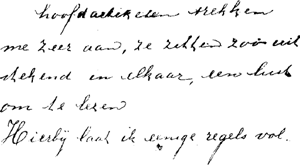 hoofdartikelen trekken
me zeer aan, ze zitten zoo uit
stekend in elkaar, een lust
om te lezen
Hierbij laat ik eenige regels vol.